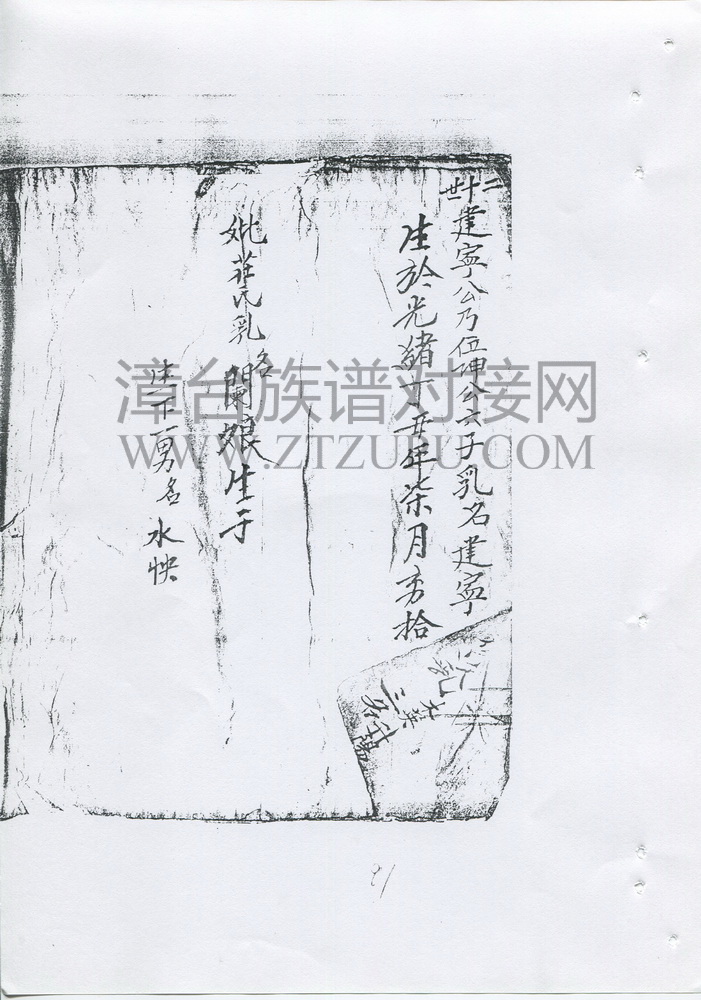 二十世
建寧公乃伍坤公六子乳名建寧
生於光緒丁丑年柒月初拾
妣莊氏乳名蘭娘生子
生下一男名水怏
漳台族谱对接网
WWW.ZTZUPU.COM